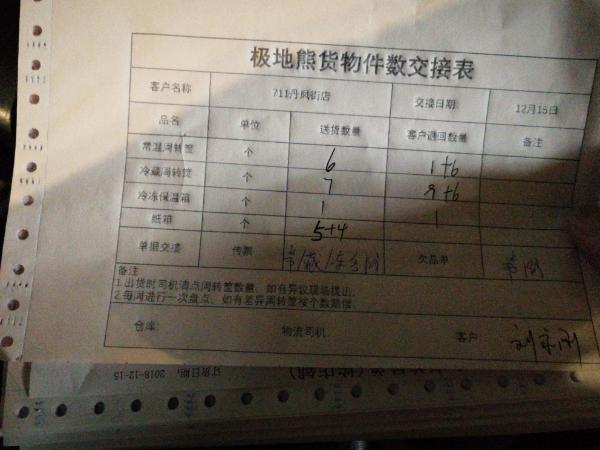 极地熊货物件数交接表
客户名称 711丹凤街店 交接日期 12月15日
品名 单位 送货数量 客户退回数量 备注
常温周转筐 个 6 1+6
冷藏周转筐 个 7 9+6
冷冻保温箱 个 1 1
纸箱 个 5+4
单据交接 传票 欠品单
备注
1.出货时司机清点周转筐数量，如有异议现场提出。
2.每周进行一次盘点，如有差异周转筐按个数赔偿。
仓库: 物流司机: 客户
订货日期: 2018-12-15